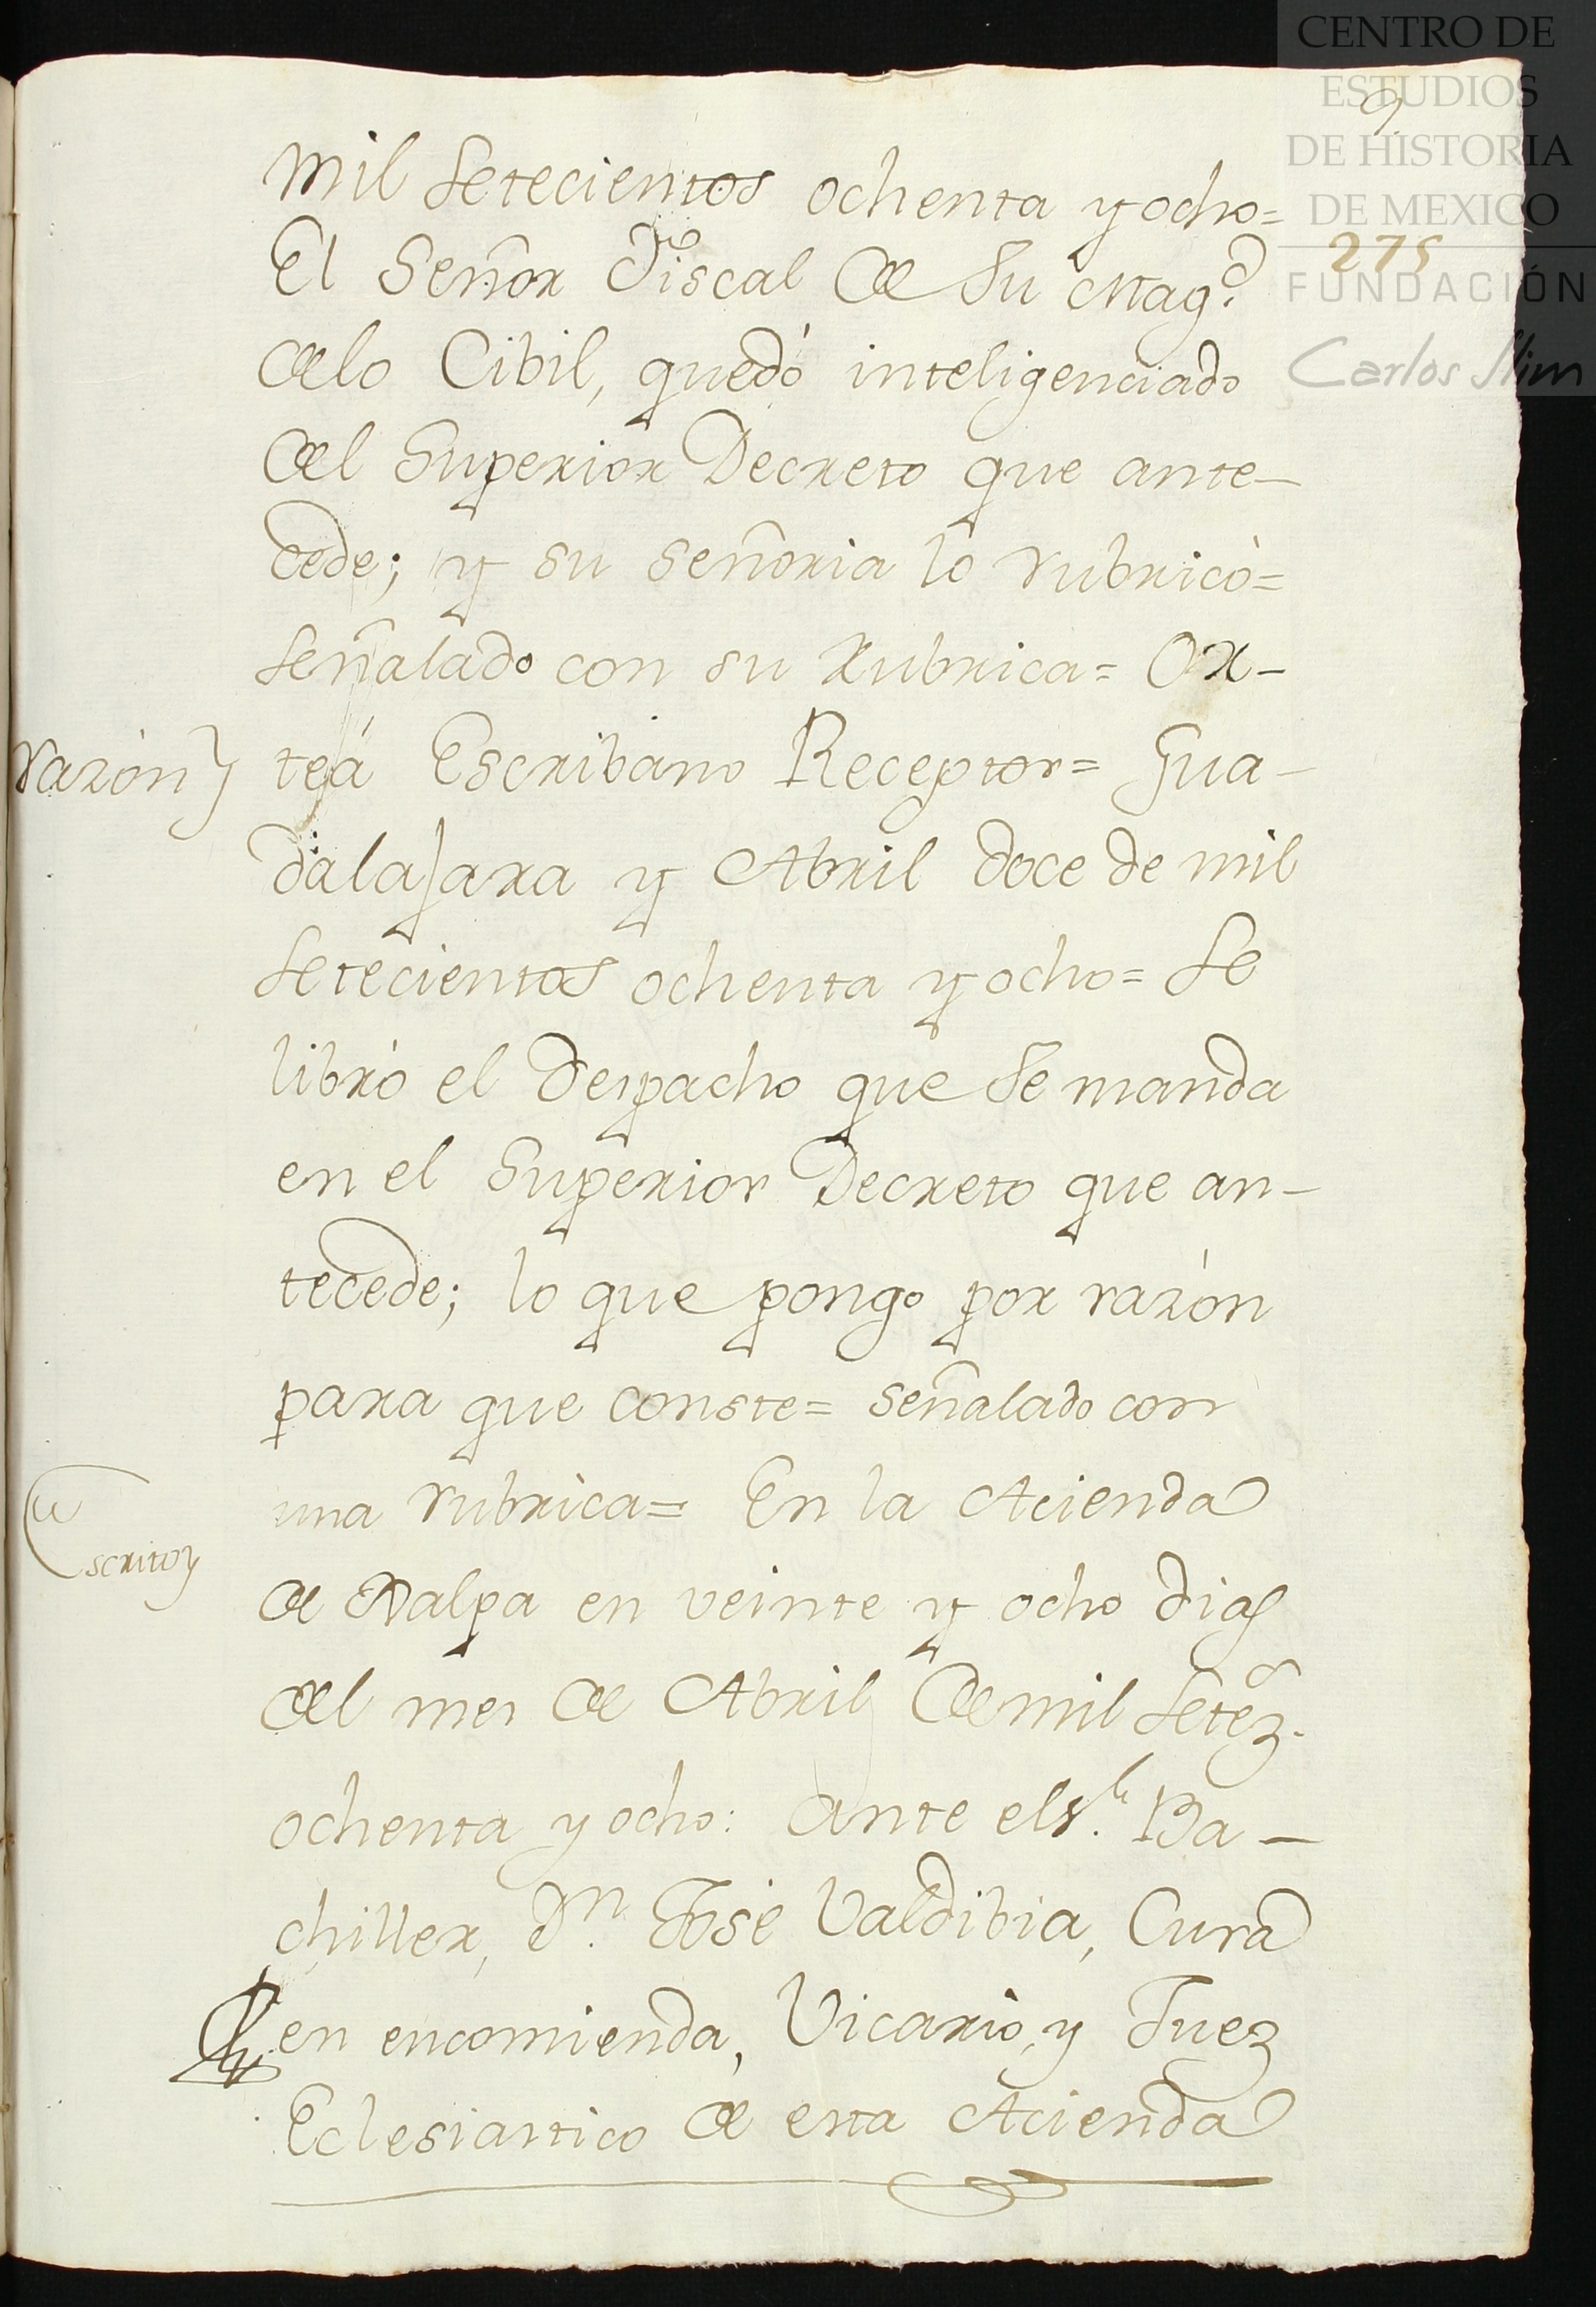 CENTRO DE
ESTUDIOS
DE HISTORIA
DE MEXICO
FUNDACIÓN
Carlos Slim
9
275
Mil Setecientos ochenta y ocho=
El Señor Fiscal de Su Mag.d
delo Cibil, quedó inteligenciado
del Superior Decreto que ante-
cede; y su señoria lo rubricó=
Señalado con su Rubrica= Or-
razón
teá Escribano Receptor= Gua-
dalajara y Abril doce de mil
Setecientos ochenta y ocho= Se
libró el Despacho que Se manda
en el Superior Decreto que an-
tecede; lo que pongo por razón
para que conste= señalado con
Escrito
una rubrica= En la Acienda
de Xalpa en veinte y ocho dias
del mes de Abril de mil Setez.
ochenta y ocho: ante el s.r Ba-
chiller, D.n José Valdibia, Cura
en encomienda, Vicario, y Juez
Eclesiastico de esta Acienda